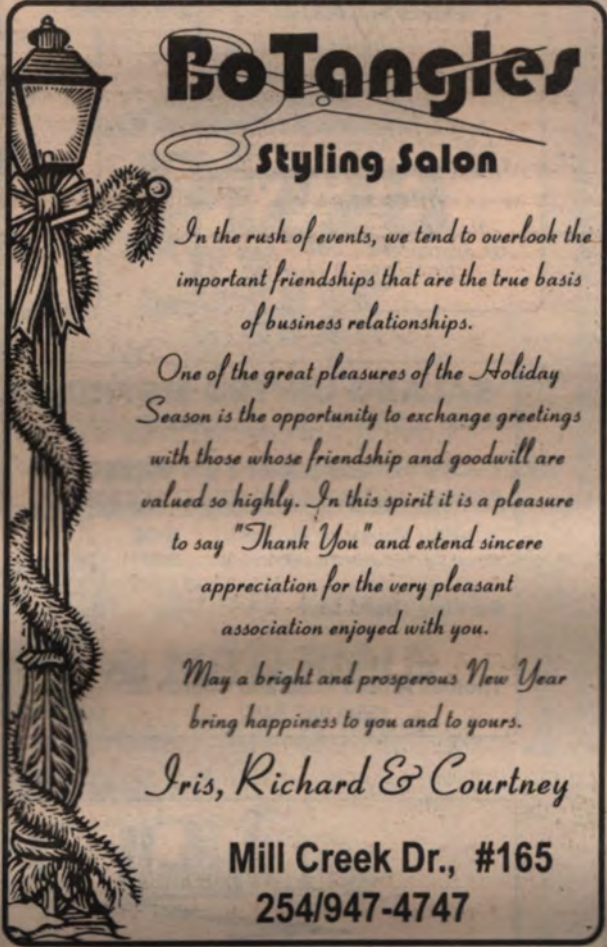 BoTangles
Styling Salon
In the rush of events, we tend to overlook the
important friendships that are the true basis
of business relationships.
One of the great pleasures of the Holiday
Season is the opportunity to exchange greetings
with those whose friendship and goodwill are
valued so highly. In this spirit it is a pleasure
to say "Thank You" and extend sincere
appreciation for the very pleasant
association enjoyed with you.
May a bright and prosperous New Year
bring happiness to you and to yours.
Iris, Richard & Courtney
Mill Creek Dr., #165
254/947-4747